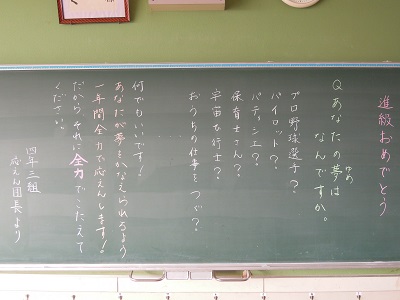 進級おめでとう
Q あなたの夢は
ゆめ
なんですか。
プロ野球選手？
パイロット？
パティシエ？
保育士さん？
宇宙飛行士？
おうちの仕事をつぐ？
何でもいいです！
あなたが夢をかなえられるよう
一年間全力で応えんします！
だから、それに全力でこたえて
ください。
四年三組
応えん団長より